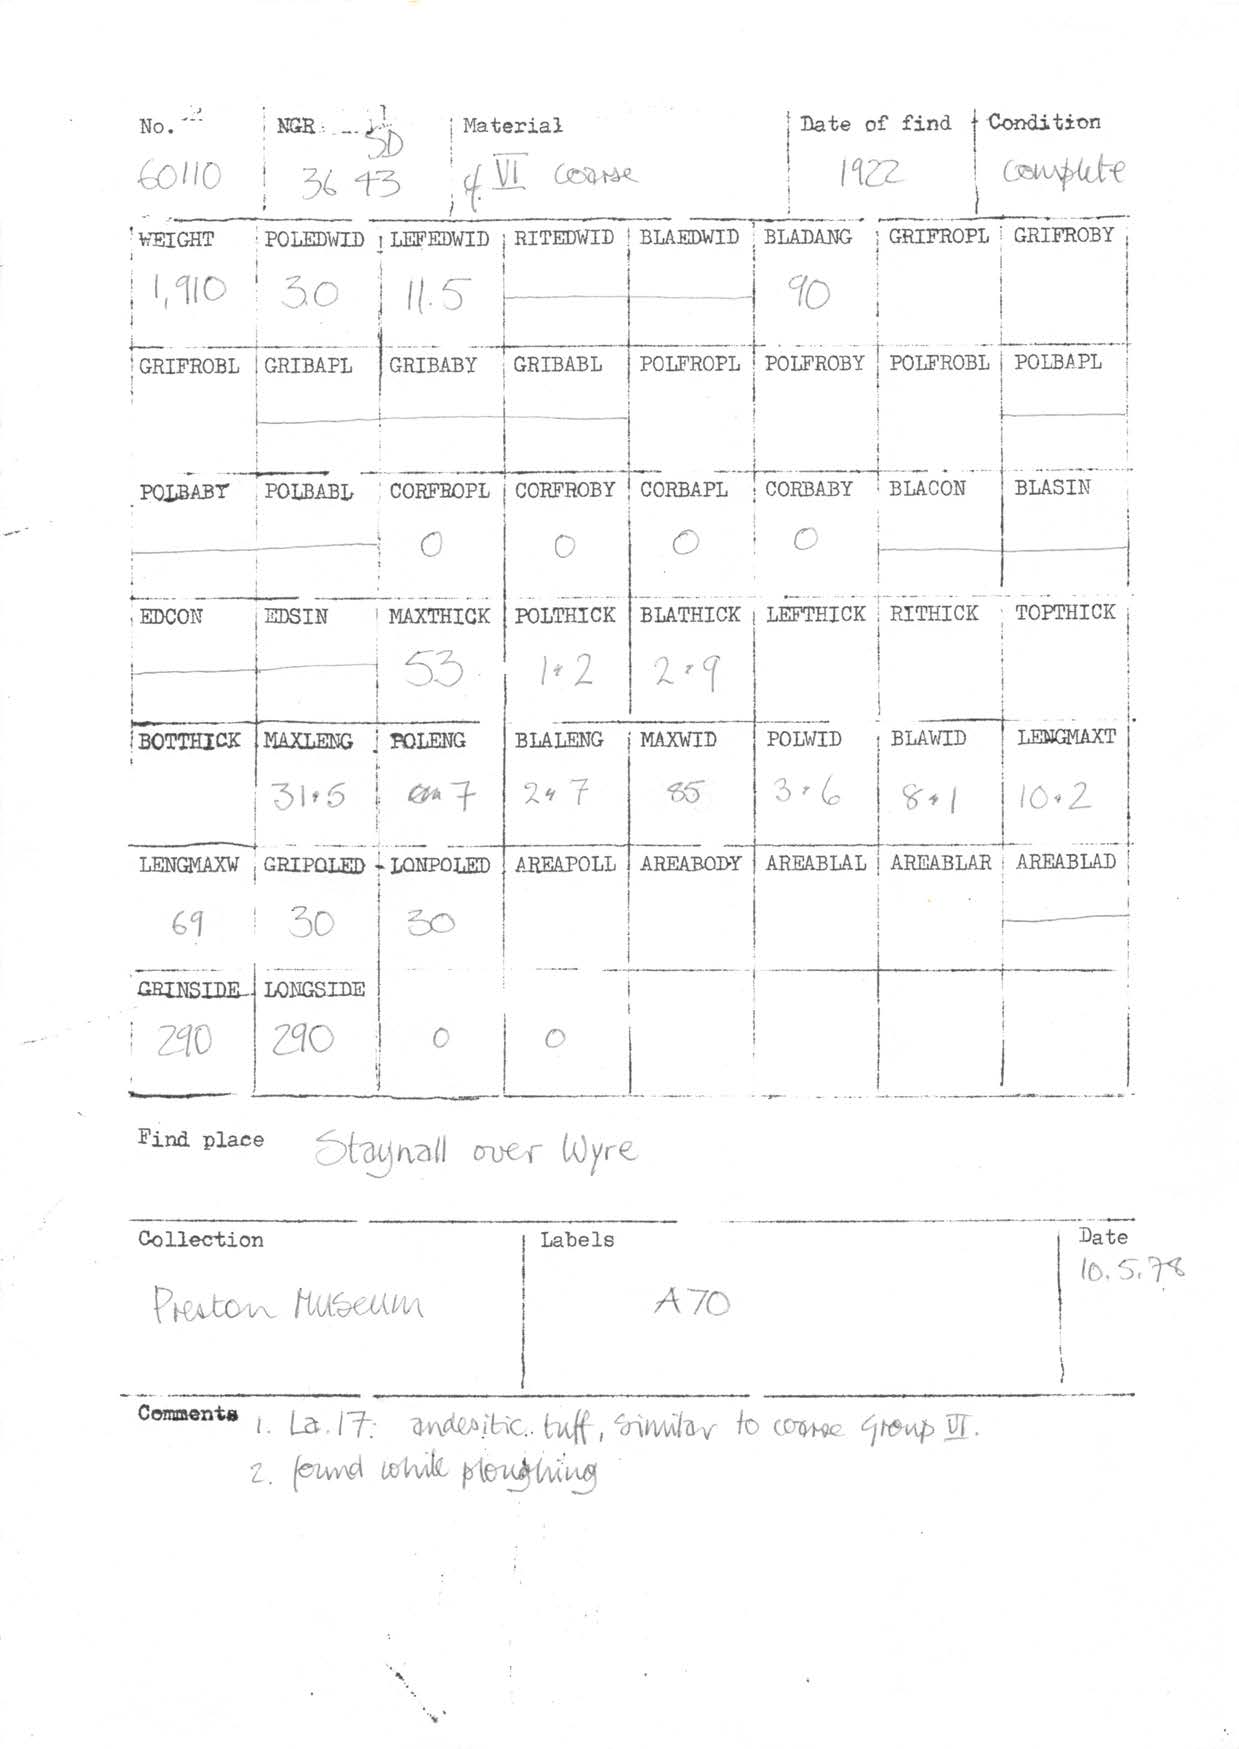 No. NGR Material Date of find Condition
SD
60110 36 43 cf. VI coarse 1922 complete
WEIGHT POLEDWID LEFEDWID RITEDWID BLAEDWID BLADANG GRIFROPL GRIFROBY
1,910 30 11.5 90
GRIFROBL GRIBAPL GRIBABY GRIBABL POLFROPL POLFROBY POLFROBL POLBAPL
POLBABY POLBABL CORFROPL CORFROBY CORBAPL CORBABY BLACON BLASIN
0 0 0 0
EDCON EDSIN MAXTHICK POLTHICK BLATHICK LEFTHICK RITHICK TOPTHICK
53 1.2 2.9
BOTTHICK MAXLENG POLENG BLALENG MAXWID POLWID BLAWID LENGMAXT
31.5 7 2.7 85 3.6 8.1 10.2
LENGMAXW GRIPOLED LONPOLED AREAPOLL AREABODY AREABLAL AREABLAR AREABLAD
69 30 30
GRINSIDE LONGSIDE
290 290 0 0
Find place Staynall over Wyre
Collection Labels Date
10.5.78
Preston Museum A70
Comments 1. La.17: andesitic tuff, similar to coarse Group VI.
2. found while ploughing